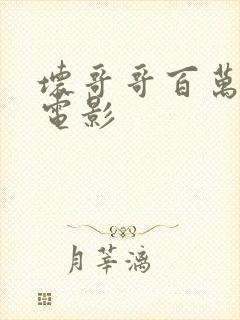 壞哥哥百萬
電影
月莘漓